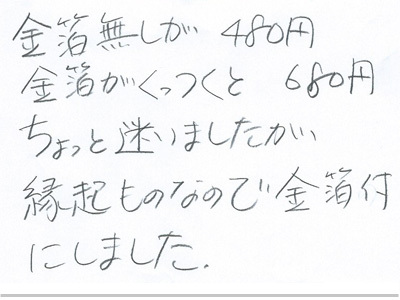 金箔無しが 480円
金箔がくっつくと 680円
ちょっと迷いましたが
縁起ものなので金箔付
にしました.